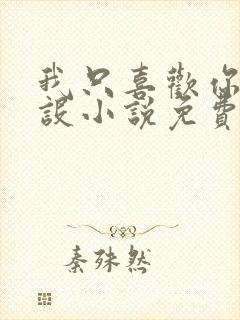 我只喜歡你
設小說免費
秦殊然